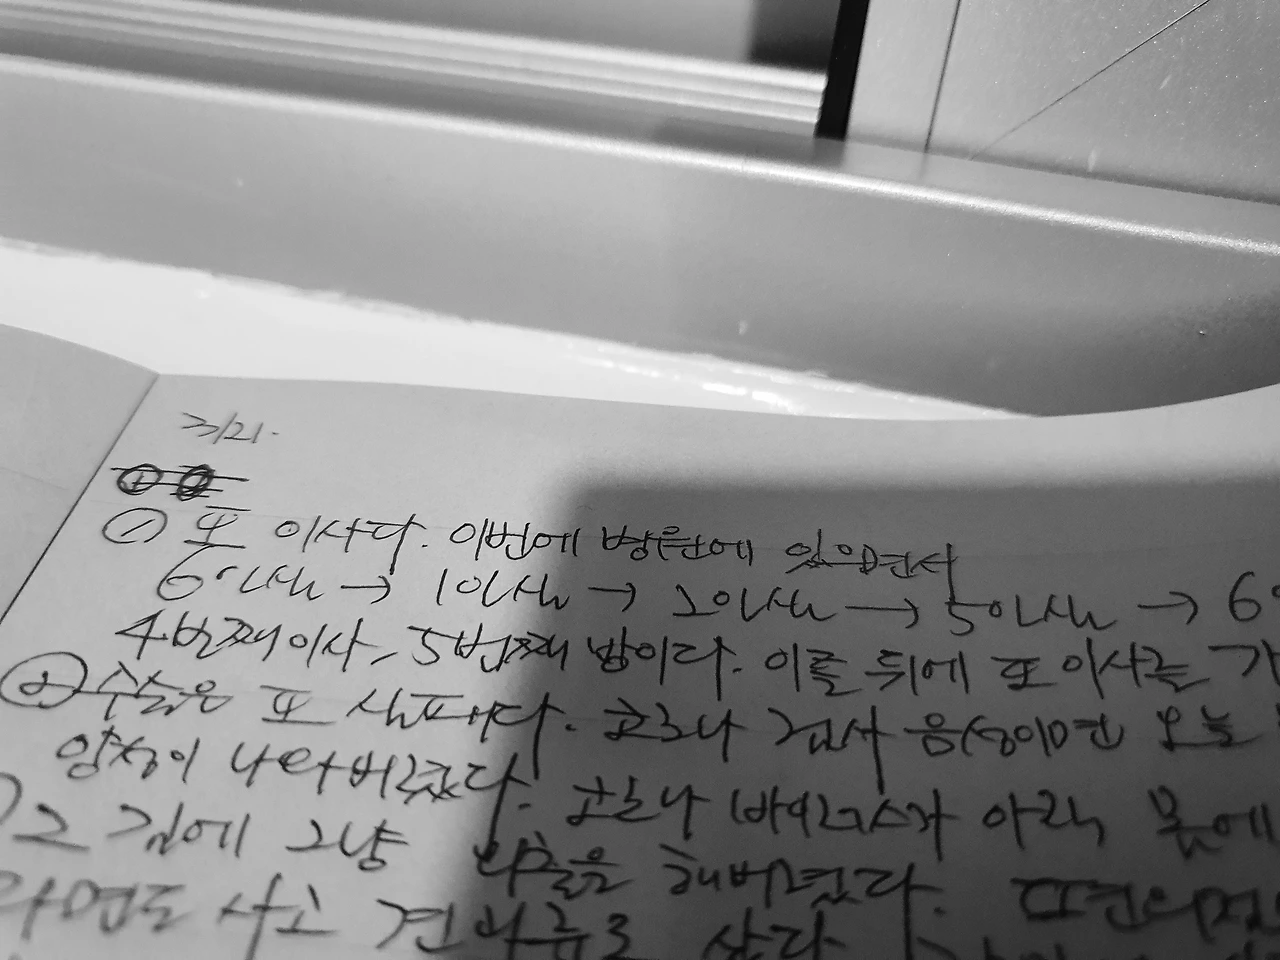 3/21.
① 또 이사다. 이번에 병동에 있으면서
6인실 → 1인실 → 2인실 → 5인실 → 6
4번째 이사, 5번째 방이다. 이틀 뒤에 또 이사를
② 수술은 또 실패다. 코로나 검사 음성이면 오늘
양성이 나와버렸다. 코로나 바이러스가 아직 몸에
그 김에 그냥 외출을 해버렸다.
라면도 사고 견과류도 샀다